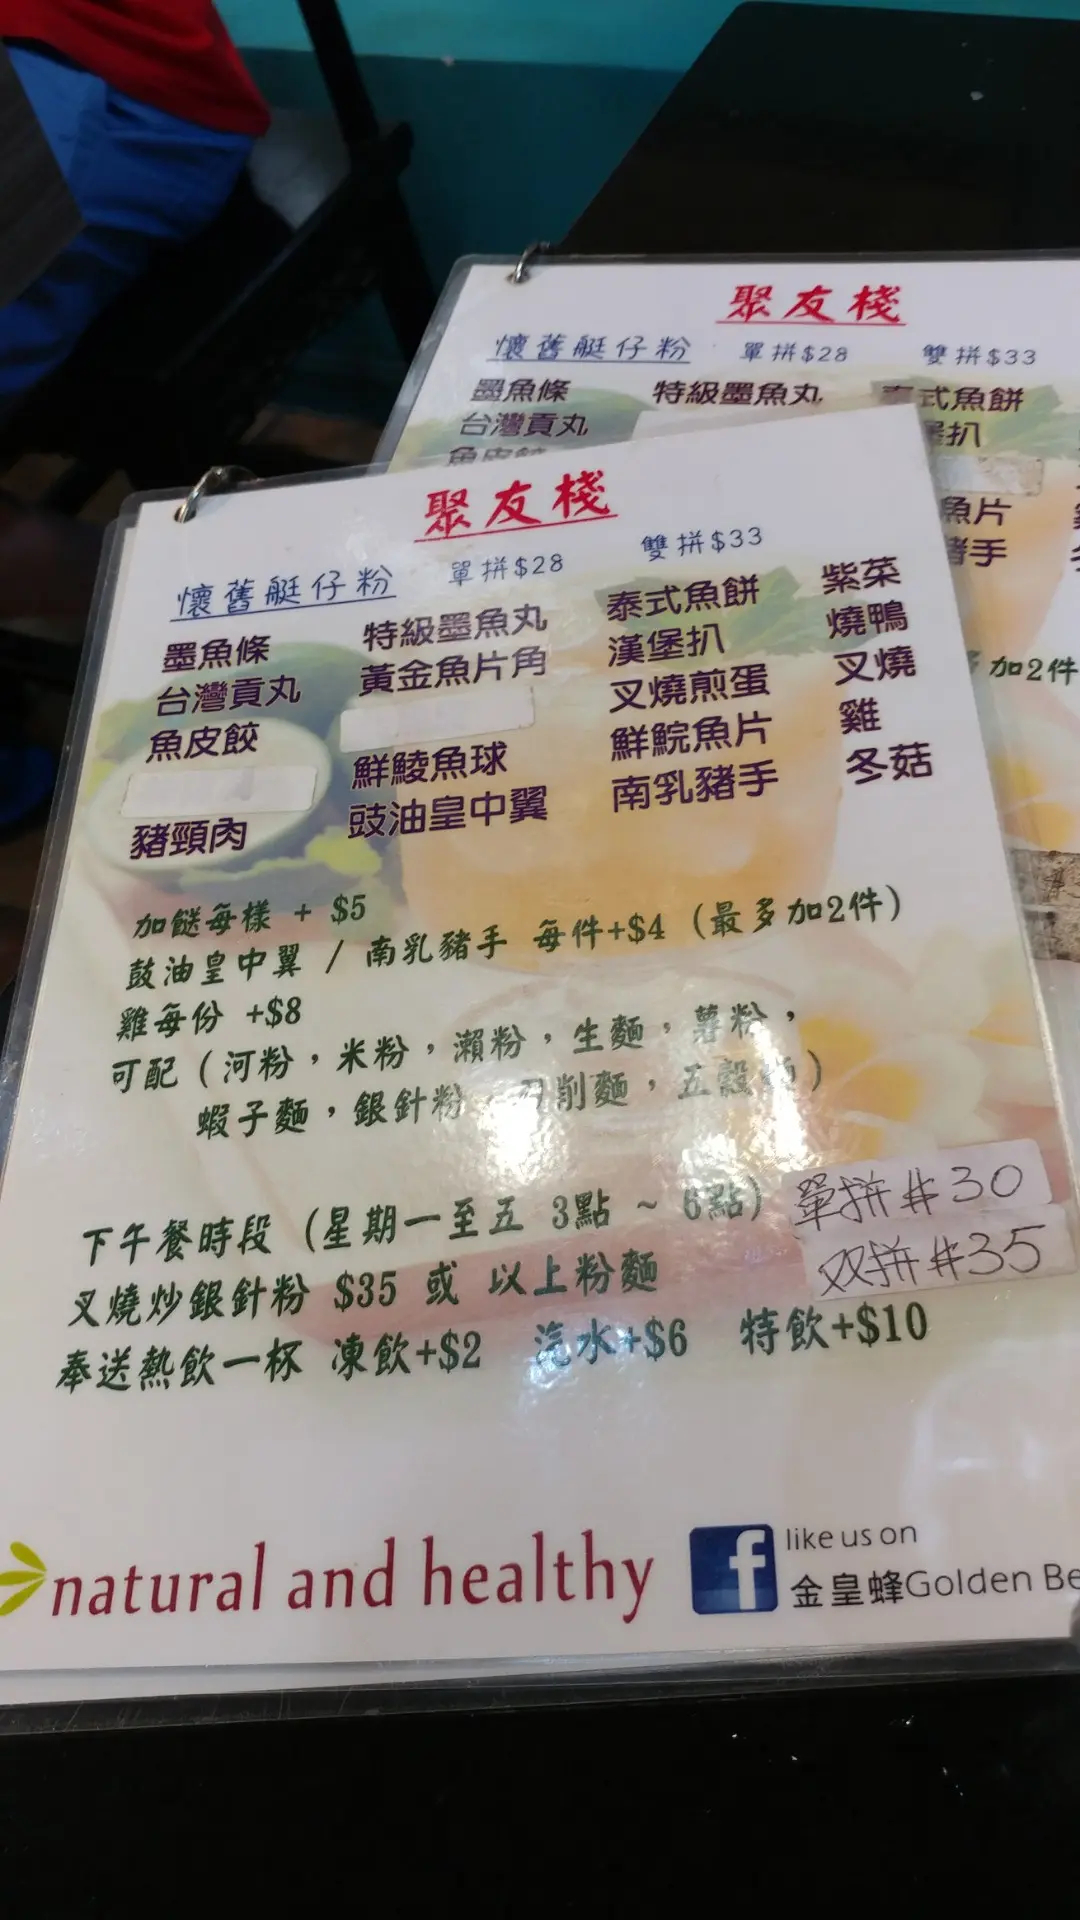 聚友棧
懷舊艇仔粉 單拼$28 雙拼$33
墨魚條 特級墨魚丸 泰式魚餅
台灣貢丸
魚皮餃
魚片
豬手
加2件
聚友棧
懷舊艇仔粉 單拼$28 雙拼$33
墨魚條 特級墨魚丸 泰式魚餅 紫菜
台灣貢丸 黃金魚片角 漢堡扒 燒鴨
魚皮餃 叉燒煎蛋 叉燒
鮮鯪魚球 鮮鯇魚片 雞
豬頸肉 豉油皇中翼 南乳豬手 冬菇
加餸每樣 + $5
鼓油皇中翼 / 南乳豬手 每件+$4 (最多加2件)
雞每份 +$8
可配 (河粉，米粉，瀨粉，生麵，薯粉，
蝦子麵，銀針粉，刀削麵，五穀麵)
下午餐時段 (星期一至五 3點 ~ 6點) 單拼#30
双拼#35
叉燒炒銀針粉 $35 或 以上粉麵
奉送熱飲一杯 凍飲+$2 汽水+$6 特飲+$10
natural and healthy
like us on
金皇蜂Golden Be